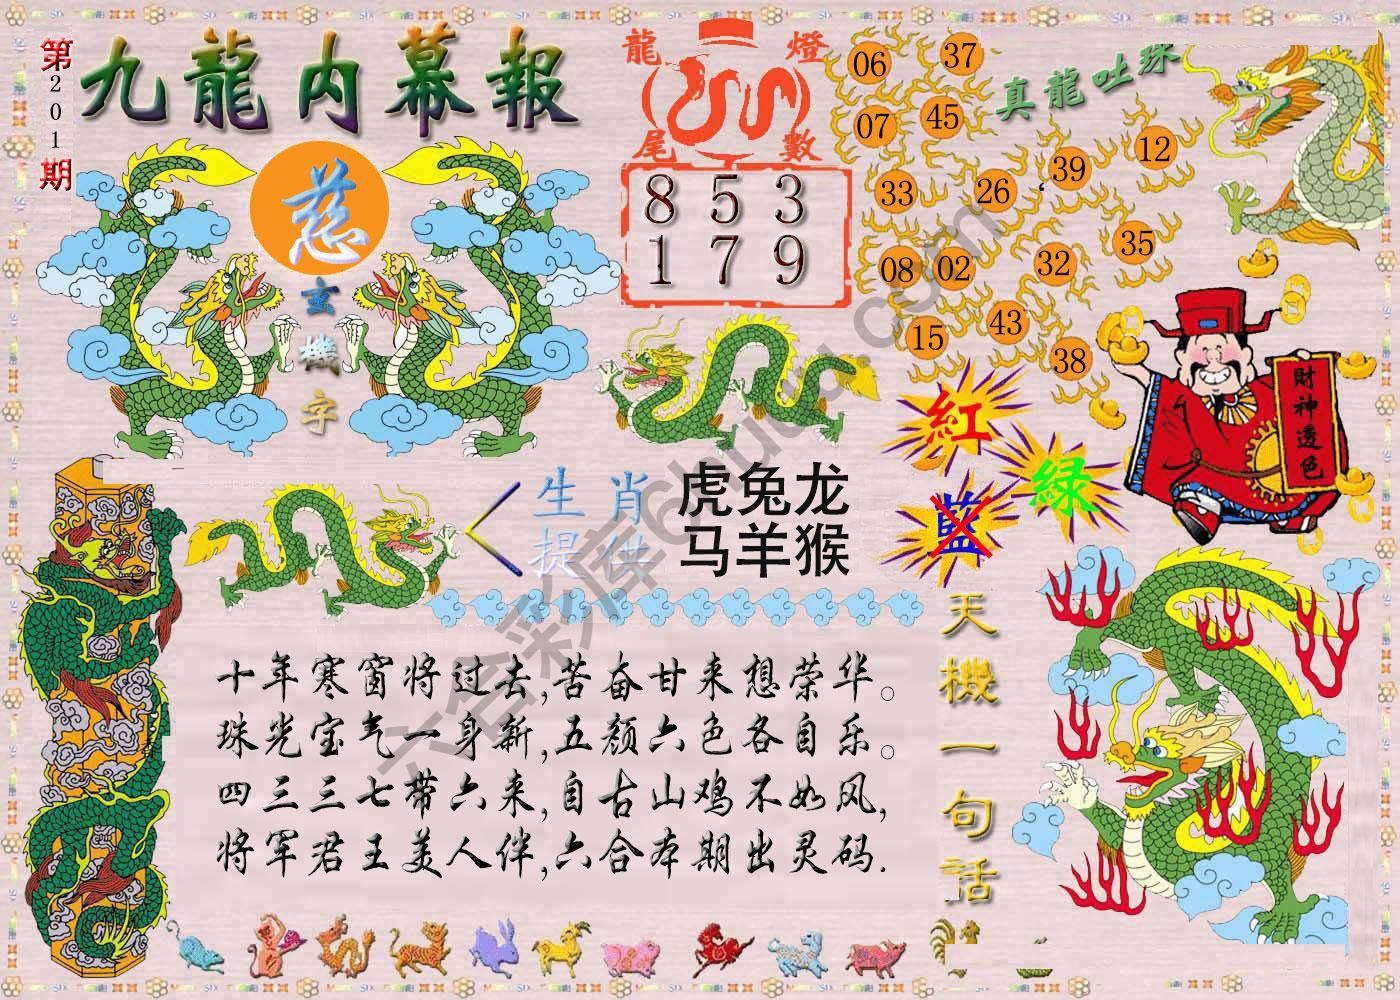 第201期
九龍内幕報
慈
玄機字
龍燈
尾數
8 5 3
1 7 9
真龍吐珠
06 37
07 45
33 26 39 12
08 02 32 35
15 43 38
財神透色
紅
藍
綠
生肖
提供
虎兔龙
马羊猴
十年寒窗将过去,苦奋甘来想荣华。
珠光宝气一身新,五颜六色各自乐。
四三三七带六来,自古山鸡不如风,
将军君王美人伴,六合本期出灵码.
天機一句話
六合彩库6huuu.com